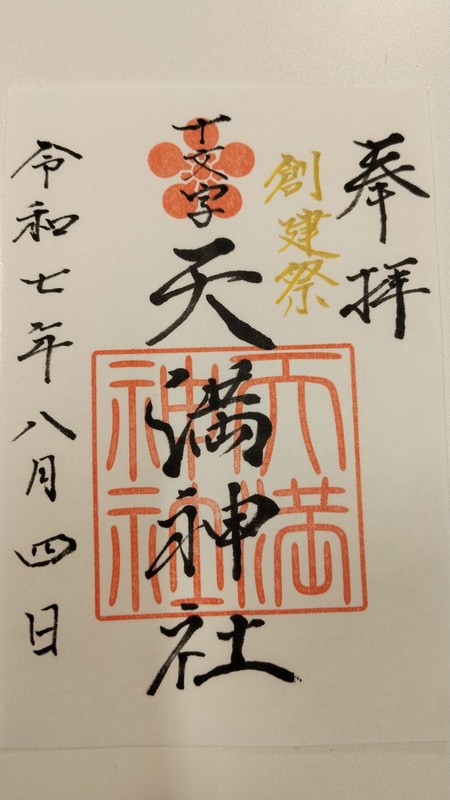 奉拝
創建祭
十文字
天満神社
天満
神社
令和七年八月四日